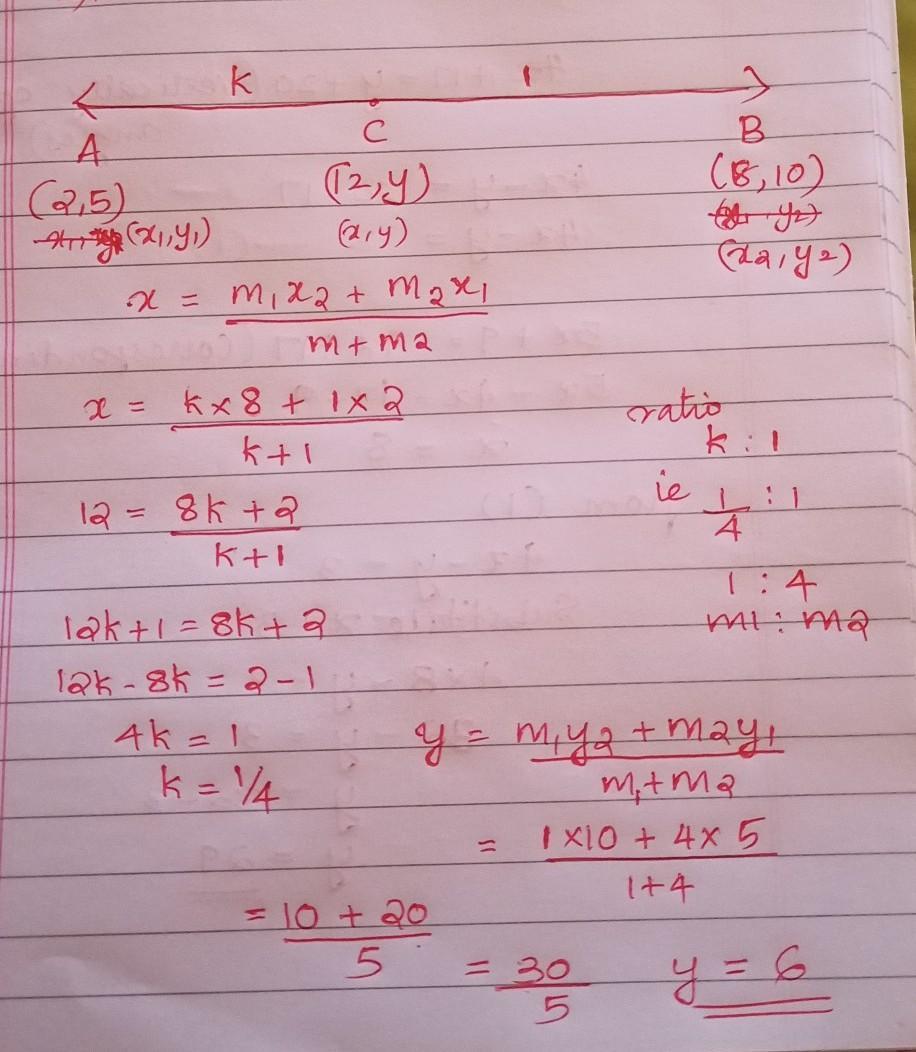 K 1
A C B
(2,5) (12,y) (8,10)
(x1,y1) (x,y) (x2,y2)
x = m1x2 + m2x1 / m+m2
x = k×8 + 1×2 / k+1
ratio
k : 1
12 = 8k+2 / k+1
ie 1/4 : 1
1 : 4
12k+1 = 8k+2
m1 : m2
12k-8k = 2-1
4k = 1
k = 1/4
y = m1y2 + m2y1 / m1+m2
= 1×10 + 4×5 / 1+4
= 10 + 20 / 5
= 30 / 5
y = 6